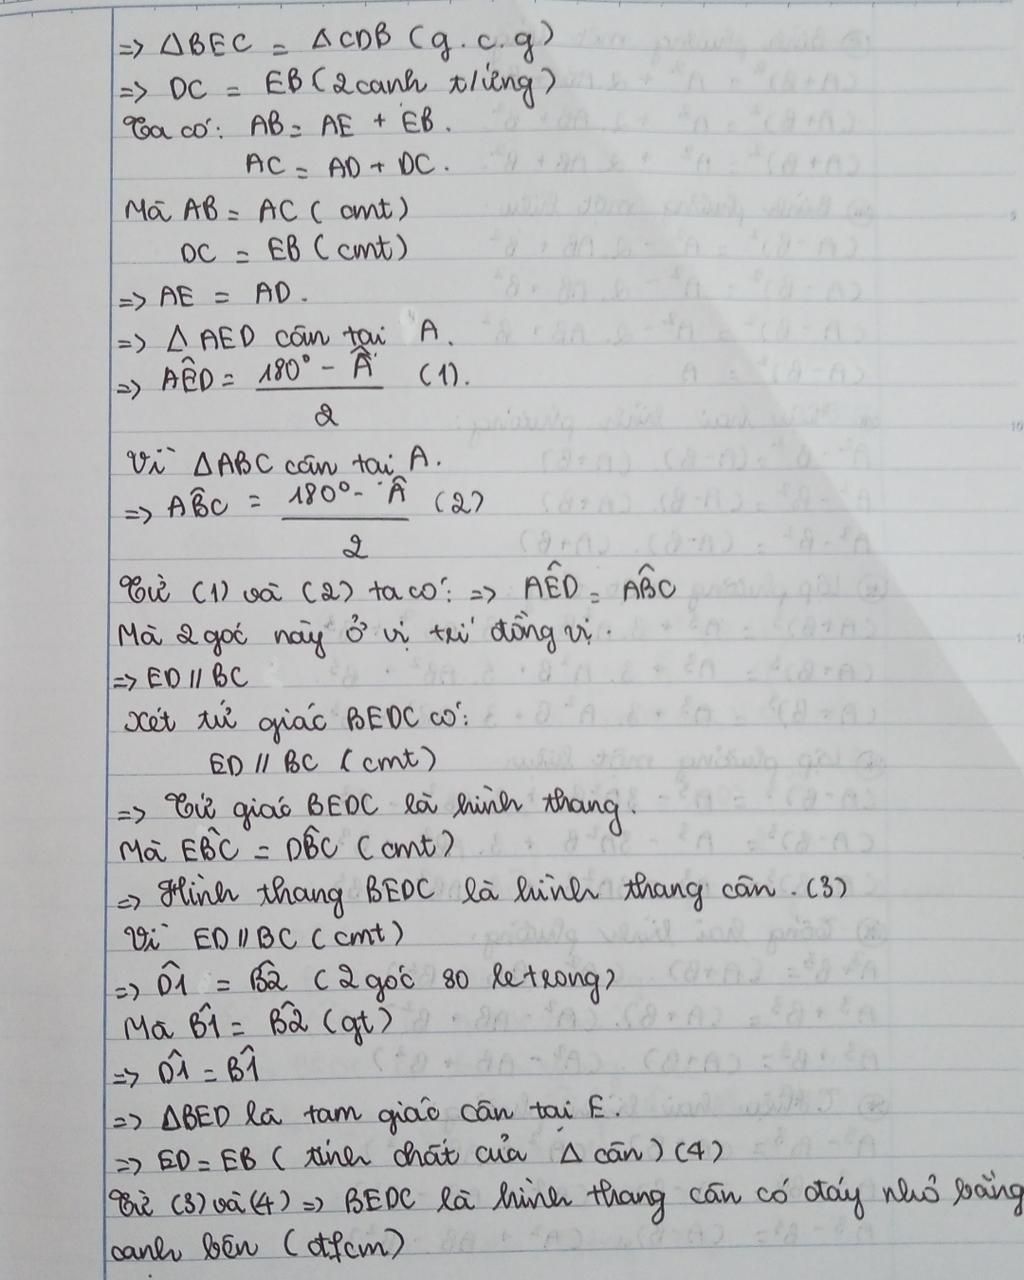 => ΔBEC = ΔCDB (g.c.g)
=> DC = EB (2 cạnh t/ứng)
Ta có: AB = AE + EB.
AC = AD + DC.
Mà AB = AC (cmt)
DC = EB (cmt)
=> AE = AD.
=> Δ AED cân tại A.
=> AÊD = (180° - Â)/2 (1).
Vì ΔABC cân tại A.
=> AB̂C = (180° - Â)/2 (2)
Từ (1) và (2) ta có: => AÊD = AB̂C
Mà 2 góc này ở vị trí đồng vị.
=> ED // BC
Xét tứ giác BEDC có:
ED // BC (cmt)
=> Tứ giác BEDC là hình thang.
Mà EB̂C = DB̂C (cmt)
=> Hình thang BEDC là hình thang cân. (3)
Vì ED // BC (cmt)
=> D̂1 = B̂2 (2 góc so le trong)
Mà B̂1 = B̂2 (gt)
=> D̂1 = B̂1
=> ΔBED là tam giác cân tại E.
=> ED = EB (tính chất của Δ cân) (4)
Từ (3) và (4) => BEDC là hình thang cân có đáy nhỏ bằng
cạnh bên (đfcm)